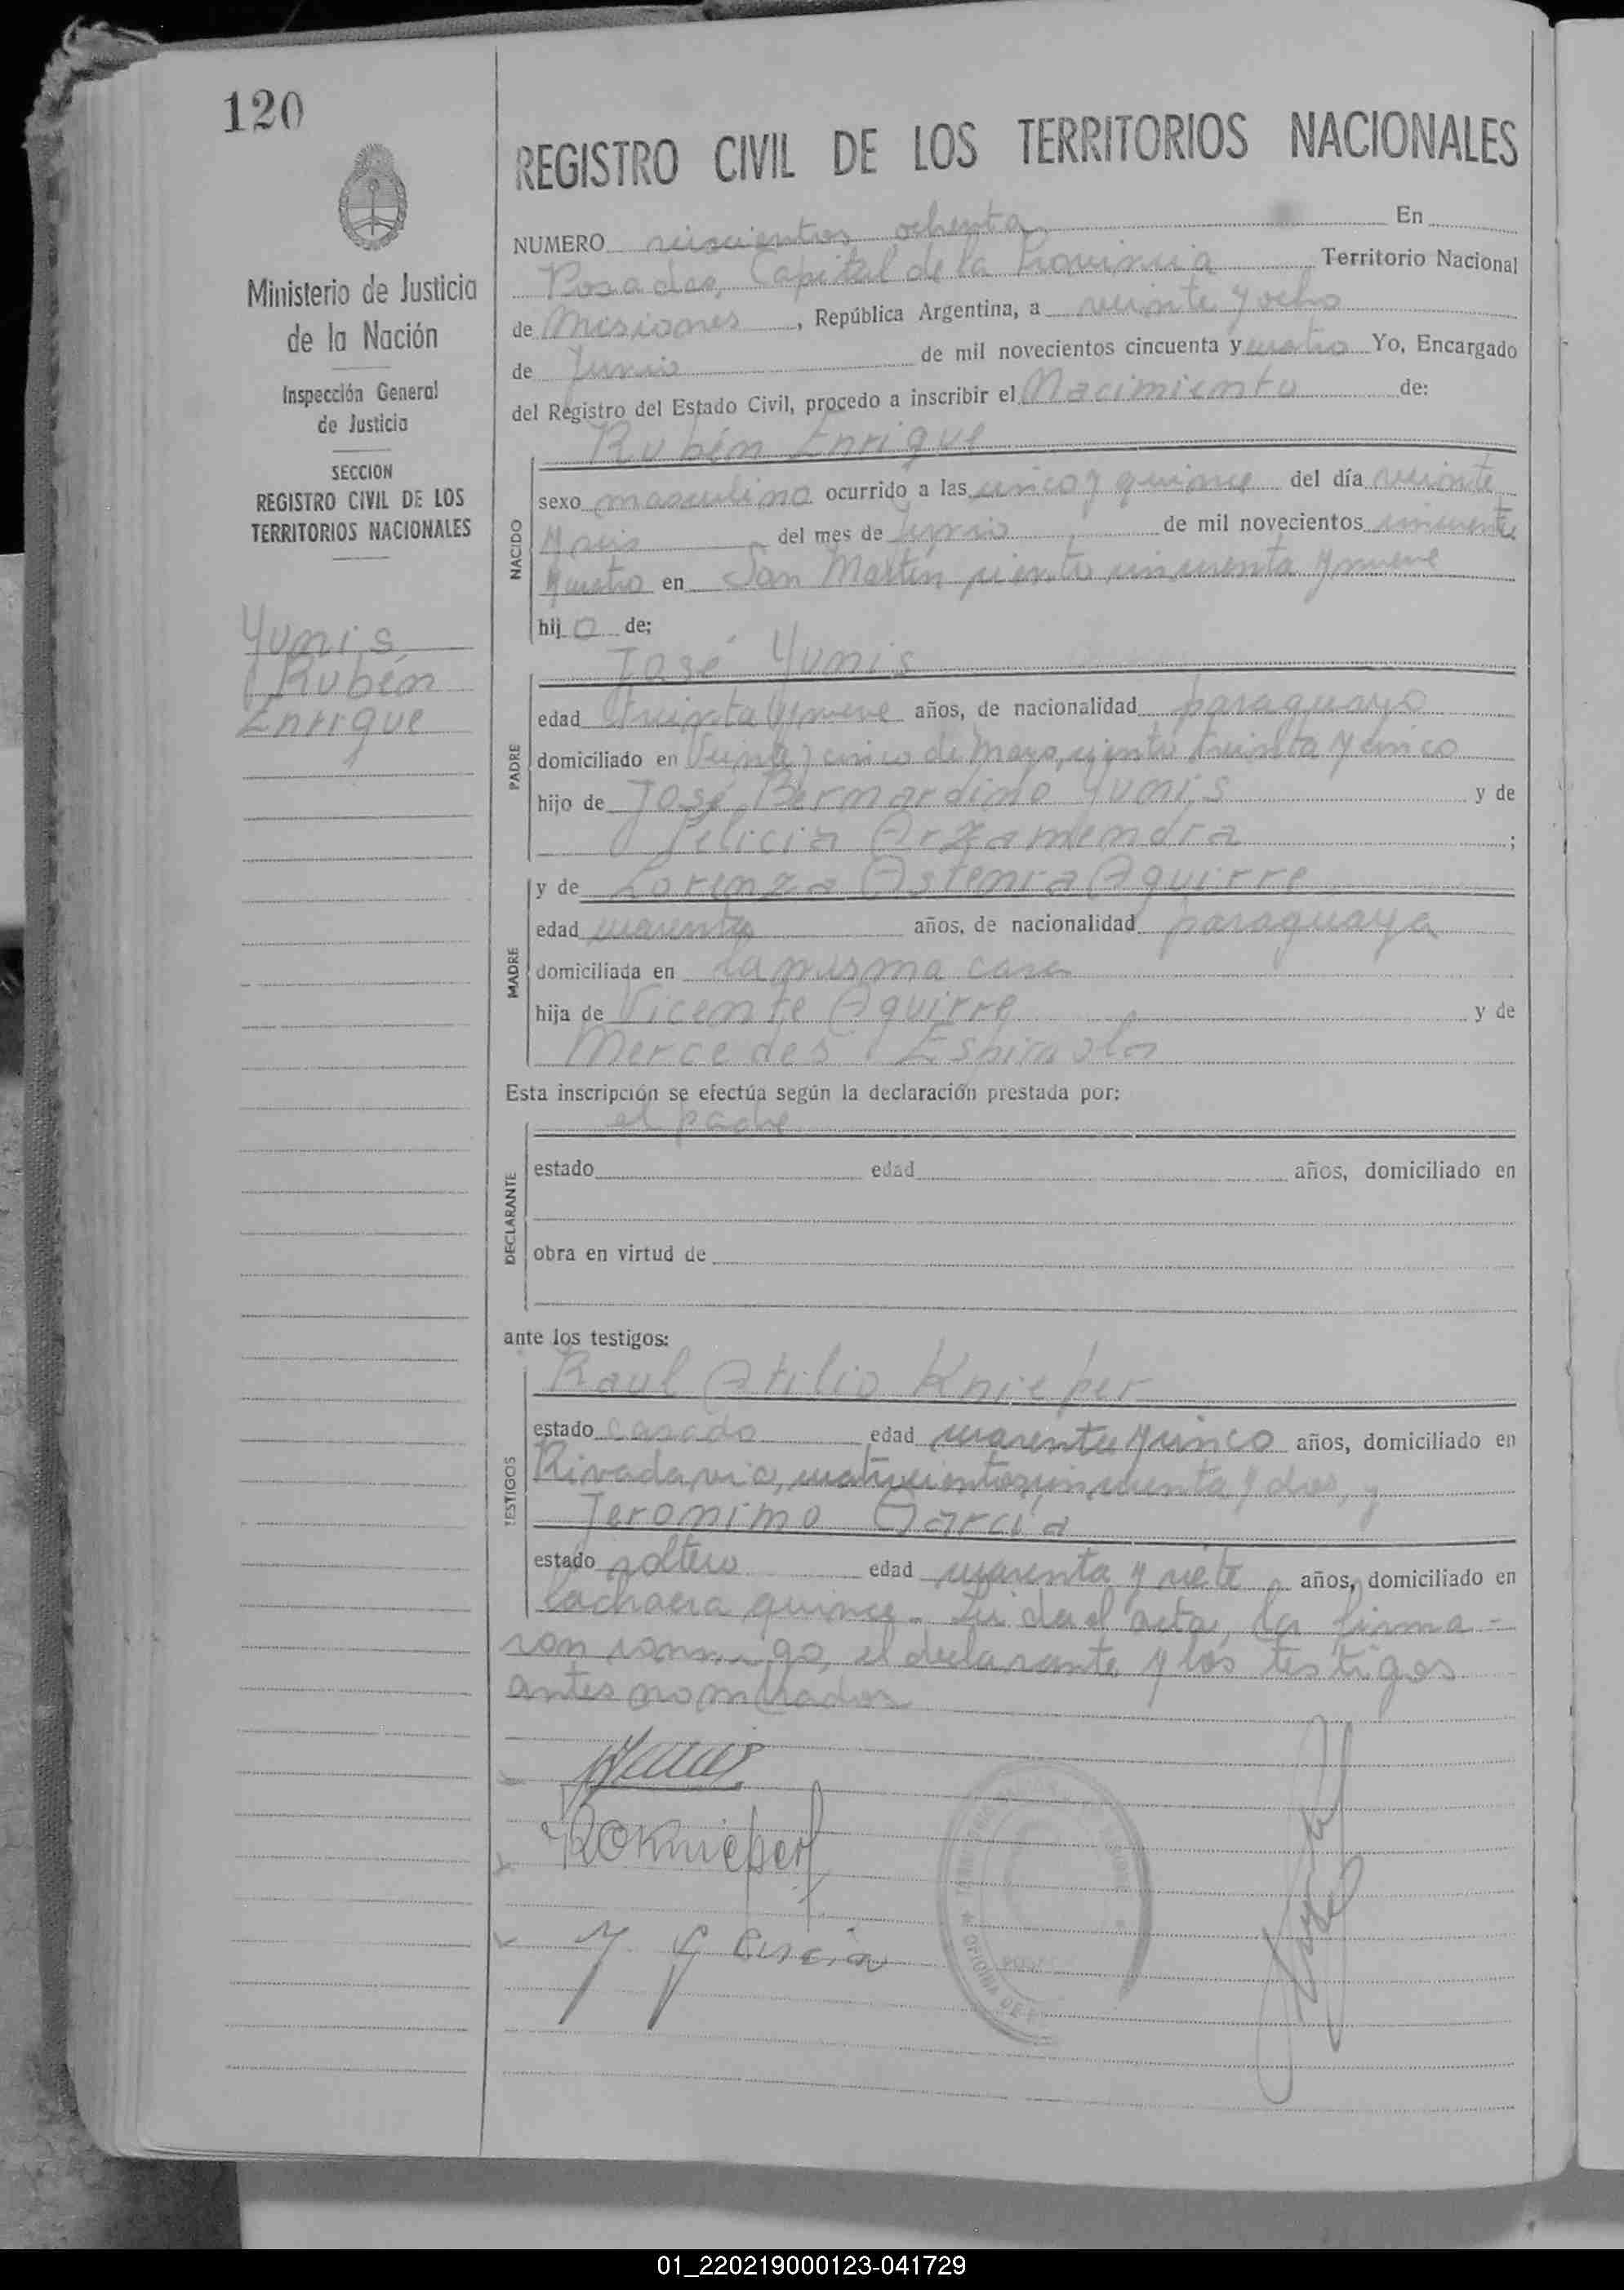 120
REGISTRO CIVIL DE LOS TERRITORIOS NACIONALES
Ministerio de Justicia
de la Nación
Inspección General
de Justicia
SECCION
REGISTRO CIVIL DE LOS
TERRITORIOS NACIONALES
Yunis
Rubén
Enrique
NUMERO seiscientos ochenta En
Posadas, Capital de la Provincia Territorio Nacional
de Misiones, República Argentina, a veinte y ocho
de Junio de mil novecientos cincuenta y cuatro Yo, Encargado
del Registro del Estado Civil, procedo a inscribir el Nacimiento de:
Rubén Enrique
NACIDO
sexo masculino ocurrido a las cinco y quince del día veinte
y seis del mes de Junio de mil novecientos cincuenta
y cuatro en San Martín ciento cincuenta y nueve
hijo de:
José Yunis
PADRE
edad treinta y nueve años, de nacionalidad paraguayo
domiciliado en Veinte y cinco de Mayo, ciento treinta y cinco
hijo de José Bernardino Yunis y de
Felicia Arzamendia;
MADRE
y de Lorenza Astenia Aguirre
edad cuarenta años, de nacionalidad paraguaya
domiciliada en la misma casa
hija de Vicente Aguirre y de
Mercedes Espinola
Esta inscripción se efectúa según la declaración prestada por:
el padre
DECLARANTE
estado edad años, domiciliado en
obra en virtud de
ante los testigos:
Raul Atilio Knieper
TESTIGOS
estado casado edad cuarenta y cinco años, domiciliado en
Rivadavia, cuatrocientos cincuenta y dos, y
Jeronimo Garcia
estado soltero edad cuarenta y siete años, domiciliado en
la chacra quince. Leida el acta, la firma-
ron conmigo, el declarante y los testigos
antes nombrados
Yunis
RAKnieper
J. Garcia
OFICINA DE
01_220219000123-041729